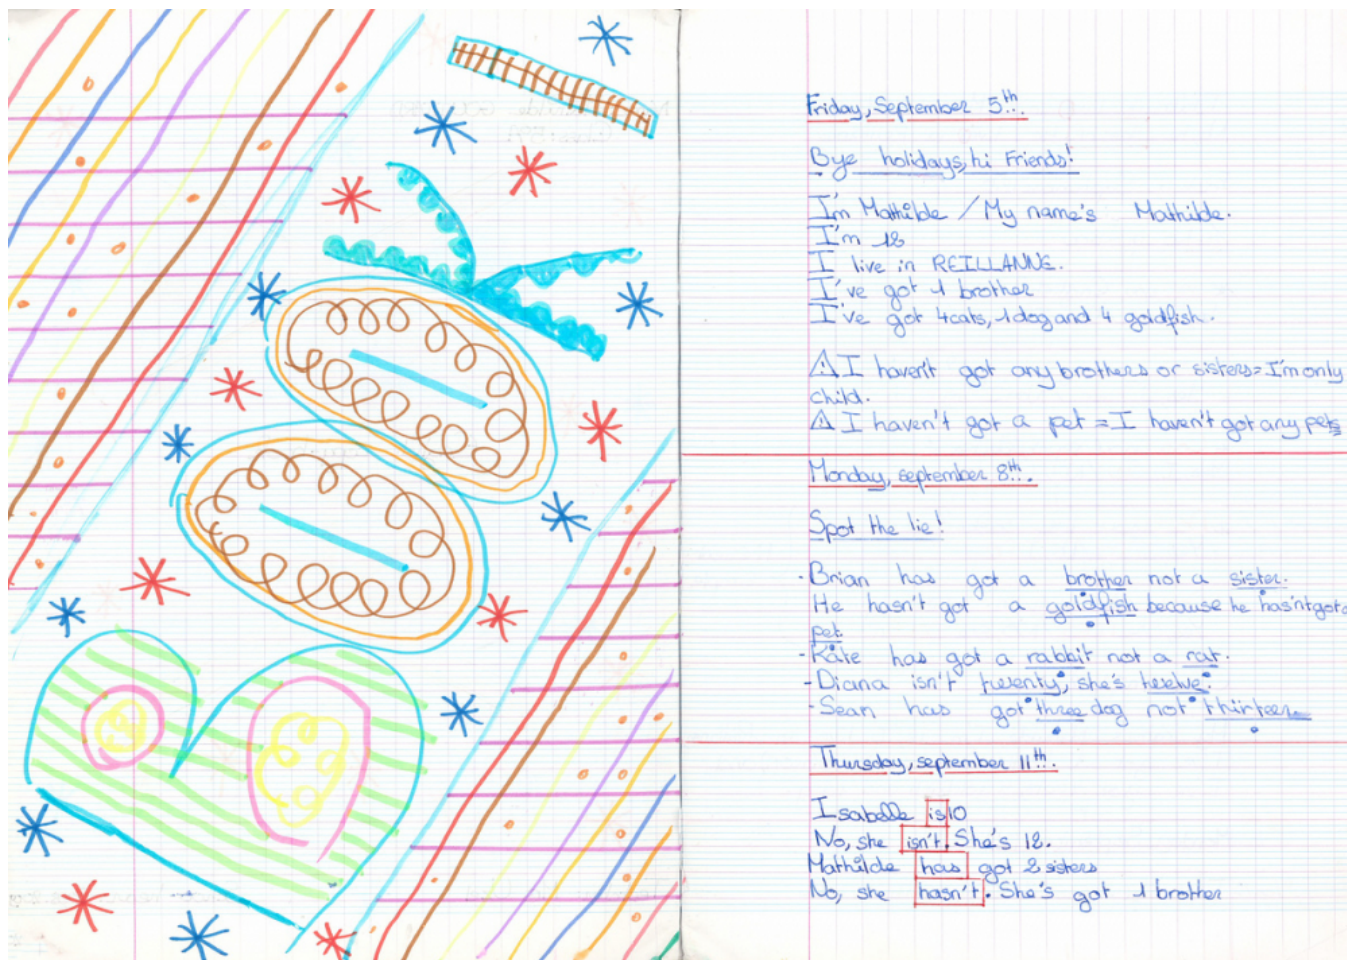 Friday, September 5th.
Bye holidays, hi Friends!
I'm Mathilde / My name's Mathilde.
I'm 12
I live in REILLANNE.
I've got 1 brother
I've got 4 cats, 1 dog and 4 goldfish.
⚠ I haven't got any brothers or sisters = I'm only
child.
⚠ I haven't got a pet = I haven't got any pets
Monday, september 8th.
Spot the lie!
- Brian has got a brother not a sister.
He hasn't got a goldfish because he hasn't got a
pet.
- Kate has got a rabbit not a rat.
- Diana isn't twenty, she's twelve.
- Sean has got three dog not thirteen
Thursday, september 11th.
Isabelle is 10
No, she isn't. She's 12.
Mathilde has got 2 sisters
No, she hasn't. She's got 1 brother